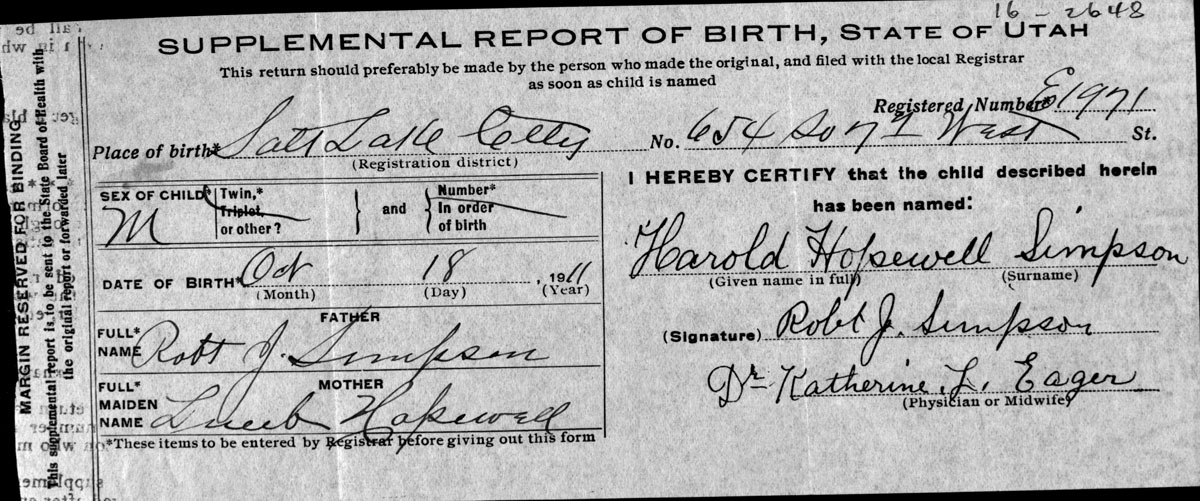 16-2648
SUPPLEMENTAL REPORT OF BIRTH, STATE OF UTAH
This return should preferably be made by the person who made the original, and filed with the local Registrar
as soon as child is named
Registered Number* E 1971
Place of birth* Salt Lake City No. 654 So 7th West St.
(Registration district)
SEX OF CHILD* M
Twin,*
Triplet,
or other?
and
Number*
In order
of birth
DATE OF BIRTH* Oct 18, 1911
(Month) (Day) (Year)
FATHER
FULL*
NAME Robt J. Simpson
MOTHER
FULL*
MAIDEN
NAME Hopewell
*These items to be entered by Registrar before giving out this form
I HEREBY CERTIFY that the child described herein
has been named:
Harold Hopewell Simpson
(Given name in full) (Surname)
(Signature) Robt J. Simpson
Dr Katherine L. Eager
(Physician or Midwife)
MARGIN RESERVED FOR BINDING
This supplemental report is to be sent to the State Board of Health with
the original report or forwarded later